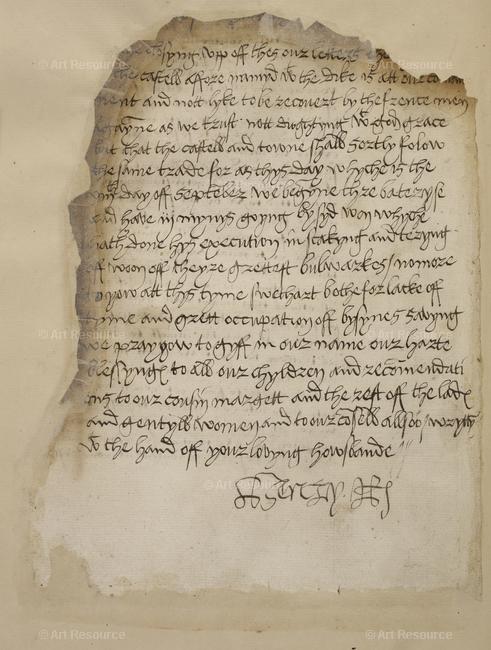 closyng upp off thes our letters
the castell affore namyd wt the dike is att our com
ment and nott lyke to be recovert by the frence men
agayne as we trust nott dughtyng wt gods grace
but that the castell and towne shall sortly folow
the same trade for as thys day whyche is the
day off september we begyne thre baterys
and have iij mynys goyng bysyd won whyche
hath done hys execution in scakyng and teryng
off woon off theyre grettest bulwarkes / no more
to yow att thys tyme swethart bothe for lacke off
tyme and grett occupation off bysynes savyng
we pray yow to gyff in our name our harte
blessyngs to all our chyldren and recomendati
ons to our cousin margett and the rest off the lads
and gentyll women and to our cosell allsoo / wrytyn
wt the hand off your lovyng howsbande
Henry R
© Art Resource
© Art Resource
© Art Resource
© Art Resource
© Art Resource
© Art Resource
© Art Resource
© Art Resource
© Art Resource